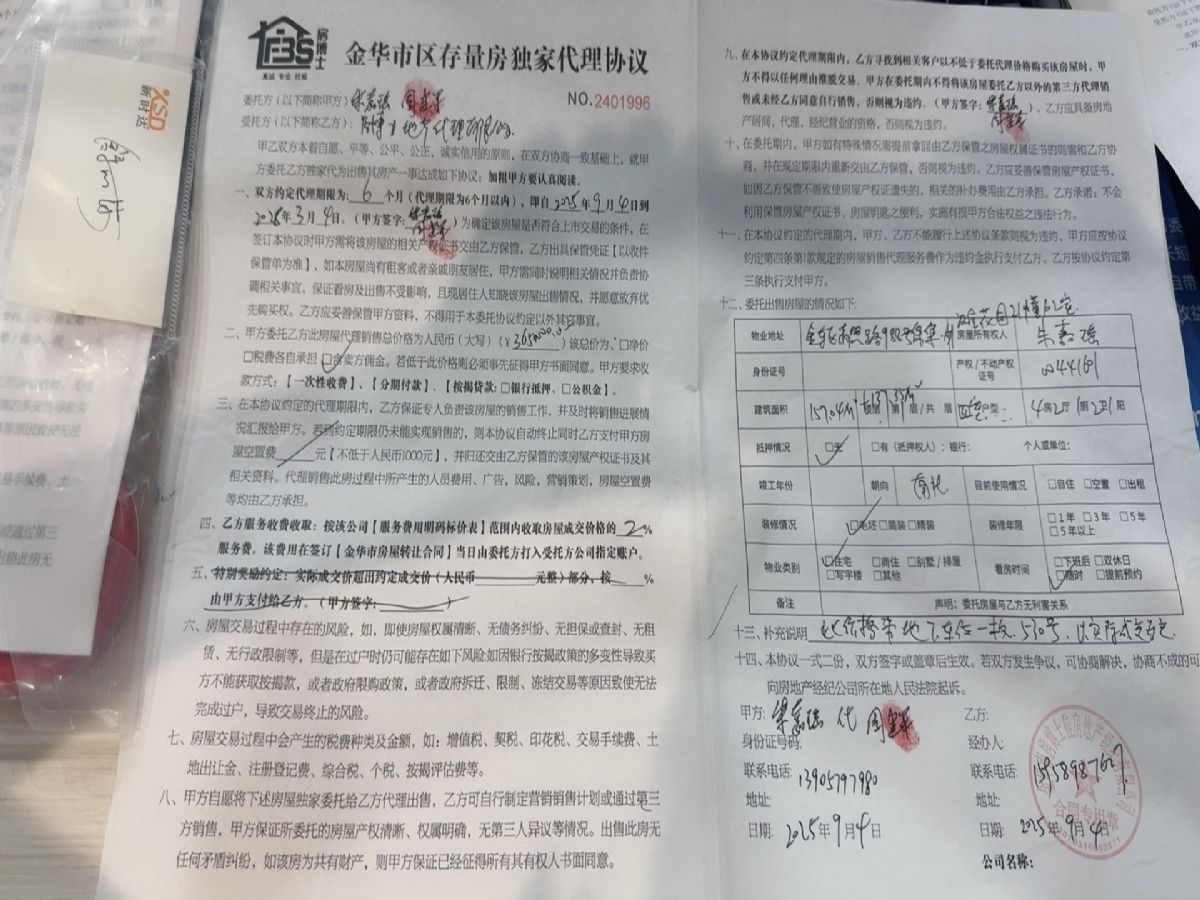 房博士
FBS
真诚 专业 权威
金华市区存量房独家代理协议
NO.2401996
委托方（以下简称甲方）
受托方（以下简称乙方）：房博士地产代理有限公司
甲乙双方本着自愿、平等、公平、公正，诚实信用的原则，在双方协商一致基础上，就甲
方委托乙方独家代为出售其房产一事达成如下协议：加粗甲方要认真阅读。
一、双方约定代理期限为：6个月（代理期限为6个月以内），即自2025年9月4日到
年3月4日、（甲方签字：）为确定该房屋是否符合上市交易的条件，在
签订本协议时甲方需将该房屋的相关产权证书交由乙方保管，乙方出具保管凭证【以收件
保管单为准】，如本房屋尚有租客或者亲戚朋友居住，甲方需同时说明相关情况并负责协
调相关事宜，保证看房及出售不受影响，且现居住人知晓该房屋出售情况，并愿意放弃优
先购买权。乙方应妥善保管甲方资料，不得用于本委托协议约定以外其它事宜。
二、甲方委托乙方此房屋代理销售总价格为人民币（大写）（￥）该总价为、□净价
□税费各自承担 □含卖方佣金。若低于此价格则必须事先征得甲方书面同意。甲方要求收
款方式：【一次性收费】、【分期付款】、【按揭贷款：□银行抵押、□公积金】。
三、在本协议约定的代理期限内，乙方保证专人负责该房屋的销售工作，并及时将销售进展情
况汇报给甲方。若到约定期限仍未能实现销售的，则本协议自动终止同时乙方支付甲方房
屋空置费 元【不低于人民币1000元】，并归还交由乙方保管的该房屋产权证书及其
相关资料。代理销售此房过程中所产生的人员费用、广告，风险，营销策划，房屋空置费
等均由乙方承担。
四、乙方服务收费收取：按该公司【服务费用明码标价表】范围内收取房屋成交价格的2%
服务费。该费用在签订【金华市房屋转让合同】当日由委托方打入受托方公司指定账户。
五、特别奖励约定：实际成交价超出约定成交价（人民币 元整）部分，按 %
由甲方支付给乙方。（甲方签字： ）
六、房屋交易过程中存在的风险，如，即使房屋权属清晰、无债务纠纷、无担保或查封、无租
赁、无行政限制等，但是在过户时仍可能存在如下风险：如因银行按揭政策的多变性导致买
方不能获取按揭款，或者政府限购政策，或者政府拆迁、限制、冻结交易等原因致使无法
完成过户，导致交易终止的风险。
七、房屋交易过程中会产生的税费种类及金额，如：增值税、契税、印花税、交易手续费、土
地出让金、注册登记费、综合税、个税、按揭评估费等。
八、甲方自愿将下述房屋独家委托给乙方代理出售，乙方可自行制定营销销售计划或通过第三
方销售，甲方保证所委托的房屋产权清晰、权属明确，无第三人异议等情况。出售此房无
任何矛盾纠纷，如该房为共有财产，则甲方保证已经征得所有其有权人书面同意。
九、在本协议约定代理期限内，乙方寻找到相关客户以不低于委托代理价格购买该房屋时，甲
方不得以任何理由推脱交易。甲方在委托期内不得将该房屋委托乙方以外的第三方代理销
售或未经乙方同意自行销售。否则视为违约。（甲方签字：）乙方应具备房地
产居间，代理，经纪营业的资格，否则视为违约。
十、在委托期内，甲方如有特殊情况需提前拿回由乙方保管之房屋权属证书的则需和乙方协
商，并在规定期限内重新交由乙方保管，否则视为违约。乙方应妥善保管房屋产权证书，
如因乙方保管不善致使房屋产权证遗失的，相关的补办费用由乙方承担。乙方承诺：不会
利用保管房屋产权证书、房屋钥匙之便利，实施有损甲方合法权益之违法行为。
十一、在本协议约定的代理期内，甲方、乙方不能履行上述协议条款则视为违约，甲方应按协议
约定第四条第1款规定的房屋销售代理服务费作为违约金执行支付乙方。乙方按协议约定第
三条执行支付甲方。
十二、委托出售房屋的情况如下：
物业地址 房屋所有权人 朱嘉瑶
身份证号 产权/不动产权证号
建筑面积 157.04㎡ 第 层/共 层 户型： 4房2厅1厨2卫1阳
抵押情况 □无 □有（抵押权人）：银行： 个人或单位：
竣工年份 朝向 南北 目前使用情况 □自住 □空置 □出租
装修情况 □毛坯 □简装 □精装 装修年限 □1年 □3年 □5年 □5年以上
物业类别 □住宅 □商住 □别墅/排屋 □写字楼 □其他 看房时间 □下班后 □双休日 □随时 □提前预约
备注 声明：委托房屋与乙方无利害关系
十三、补充说明
十四、本协议一式二份，双方签字或盖章后生效。若双方发生争议，可协商解决，协商不成的可
向房地产经纪公司所在地人民法院起诉。
甲方：
乙方：
身份证号码
经办人：
联系电话：13905797980
联系电话：
地址
地址
日期：2025年9月4日
日期：2025年9月4日
公司名称：
合同专用章
XSD
新时达